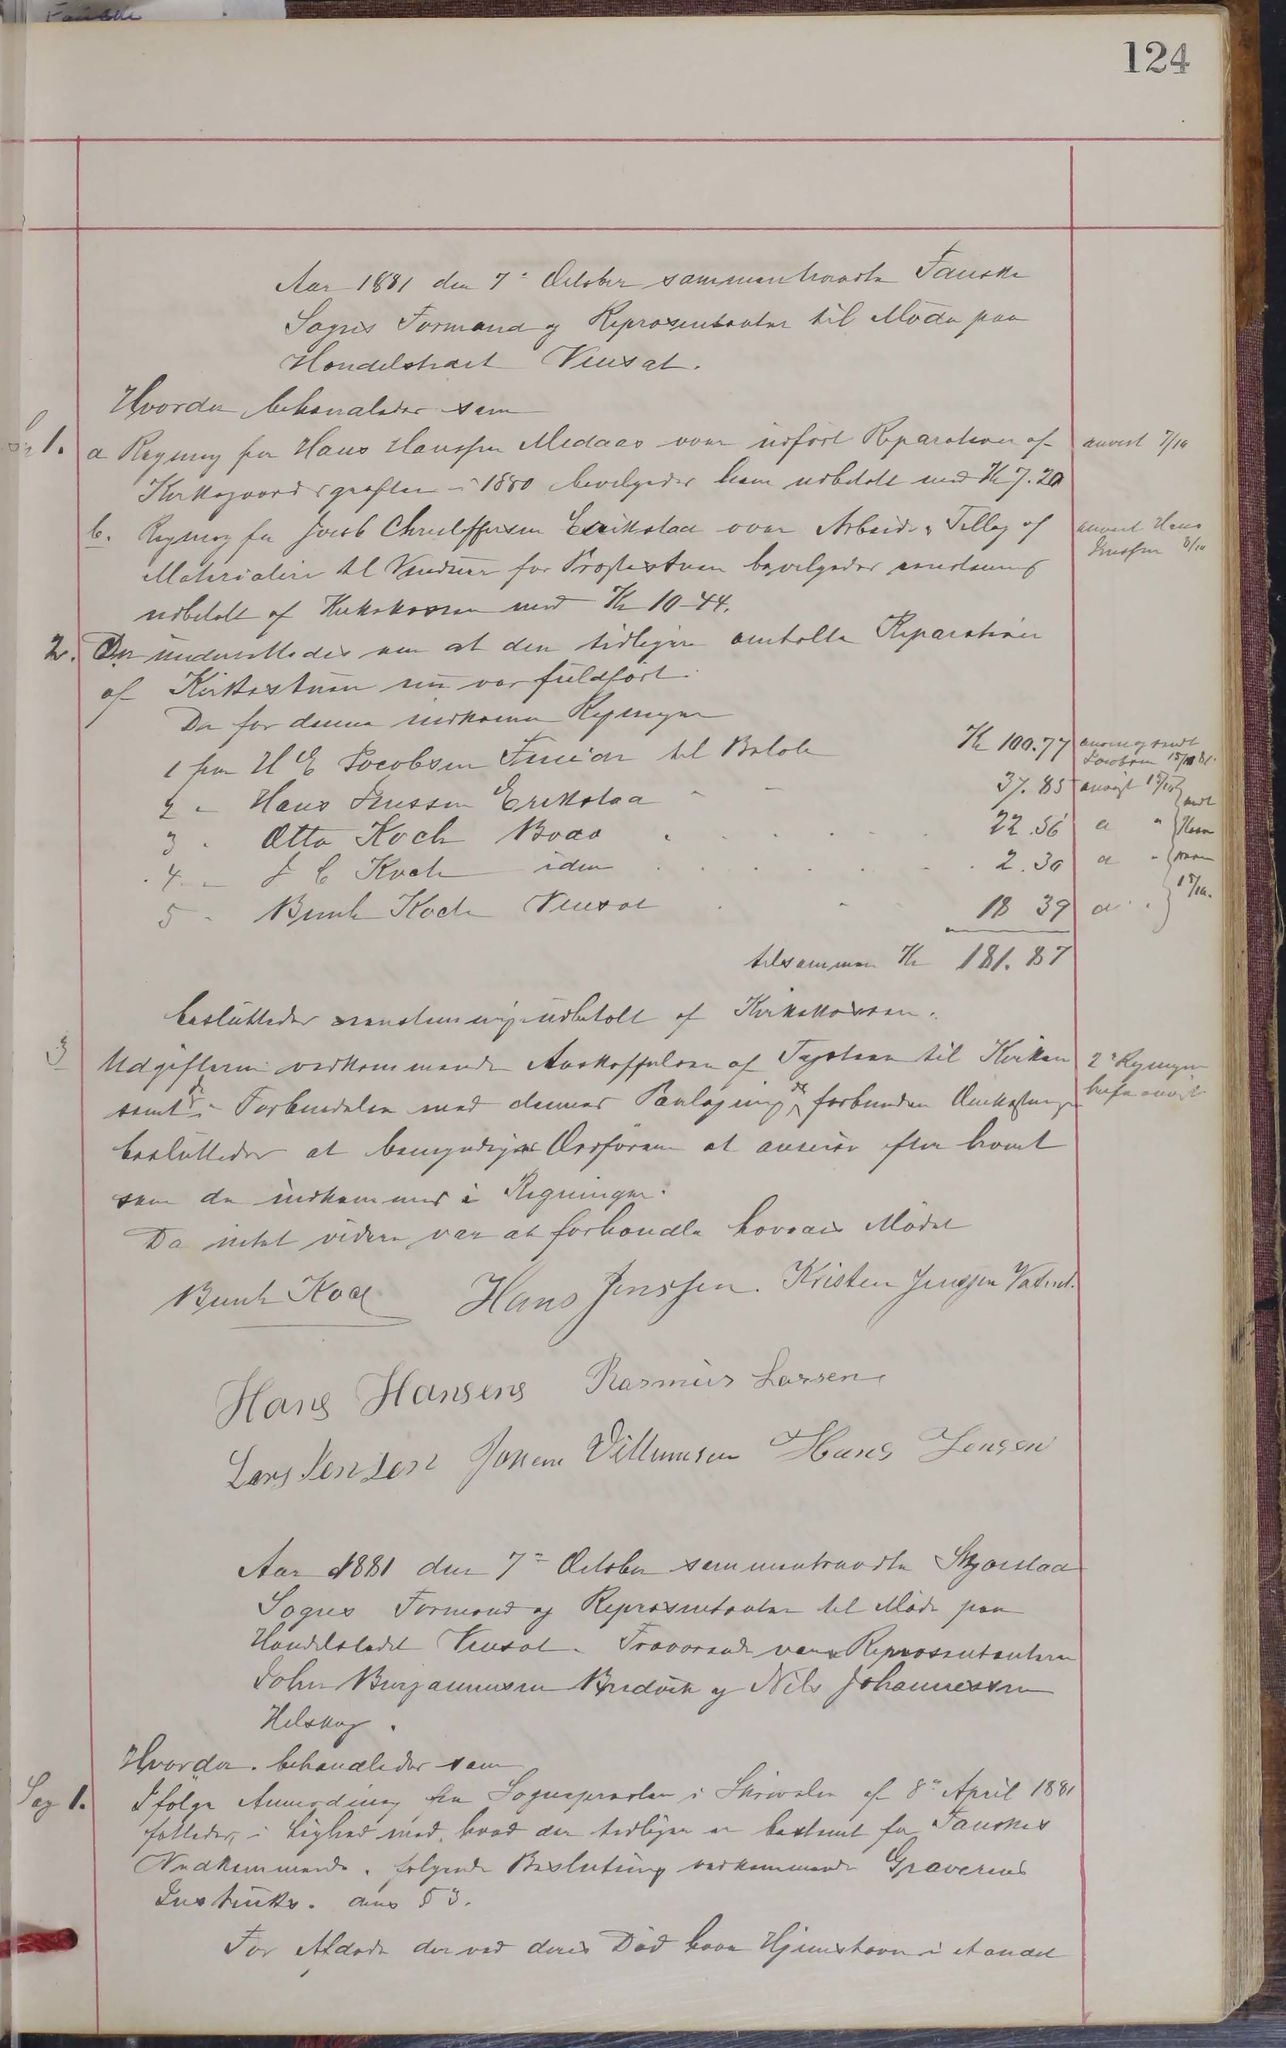 124
Aar 1881 den 7de October sammentraadte Fauske
Sogns Formænd og Repræsentanter til Møde paa
Handelsstedet Venset.
Hvorda behandledes som
Sag 1. a Regning fra Hans Hanssen Medaas over udført Reparation af anvist 7/10
Kirkegaardsgrøften i 1880 bevilgedes ham udbetalt med Kr 7.20
b. Regning fra Jacob Christoffersen Erikstad over Arbeide & Tillæg af anvist Hans
Jenssen 8/10
Materialier til Vinduer for Præstestuen bevilgedes enstemmig
udbetalt af Kirkekassen med Kr 10-44.
2. Der underrettedes om at den tidligere omtalte Reparation
af Kirkestuen nu var fuldført.
Da for denne indkomne Regninger
1 fra H E Jacobsen Fineid til Beløb Kr 100.77 anvist sendt
Jacobsen 15/10 81.
2 - Hans Jenssen Erikstad - - 37.85 anvist 15/10 sendt
3 - Otto Koch Bodø 22.56 d " Hans
4 - J C Koch idem 2.30 d "
5 - Bernh Koch Venset 18 39 d " 15/10.
tilsammen Kr 181.87
besluttedes enstemmig udbetalt af Kirkekassen.
3 Udgifterne vedkommende Anskaffelsen af Tagsteen til Kirken 2de Regninger
samt de i Forbindelse med dennes Paalægning forbundne Omkostninger
besluttedes at bemyndige Ordføreren at anvise efter hvert
som de indkommer i Regninger.
Da intet videre var at forhandle hævedes Mødet
Bernh Koch Hans Jenssen. Kristen Jenssen Vatnet.
Hans Hansens Rasmus Larsen
Lars Jensen Johan Villumsen Hans Jensen
Aar 1881 den 7de October sammentraadte Skjerstad
Sogns Formænd og Repræsentanter til Møde paa
Handelsstedet Venset. Fraværende vare Repræsentanterne
John Benjaminsen Bredvik og Nils Johannessen
Helskog.
Hvorda behandledes som
Sag 1. Ifølge Anmodning fra Sognepræsten i Skrivelse af 8de April 1881
fattedes, i Lighed med, hvad der tidligere er bestemt for Fauskes
Vedkommende, følgende Beslutning vedkommende Graverens
Instruks. dens § 3.
For Afdøde der ved deres Død have Hjemstavn i et andet